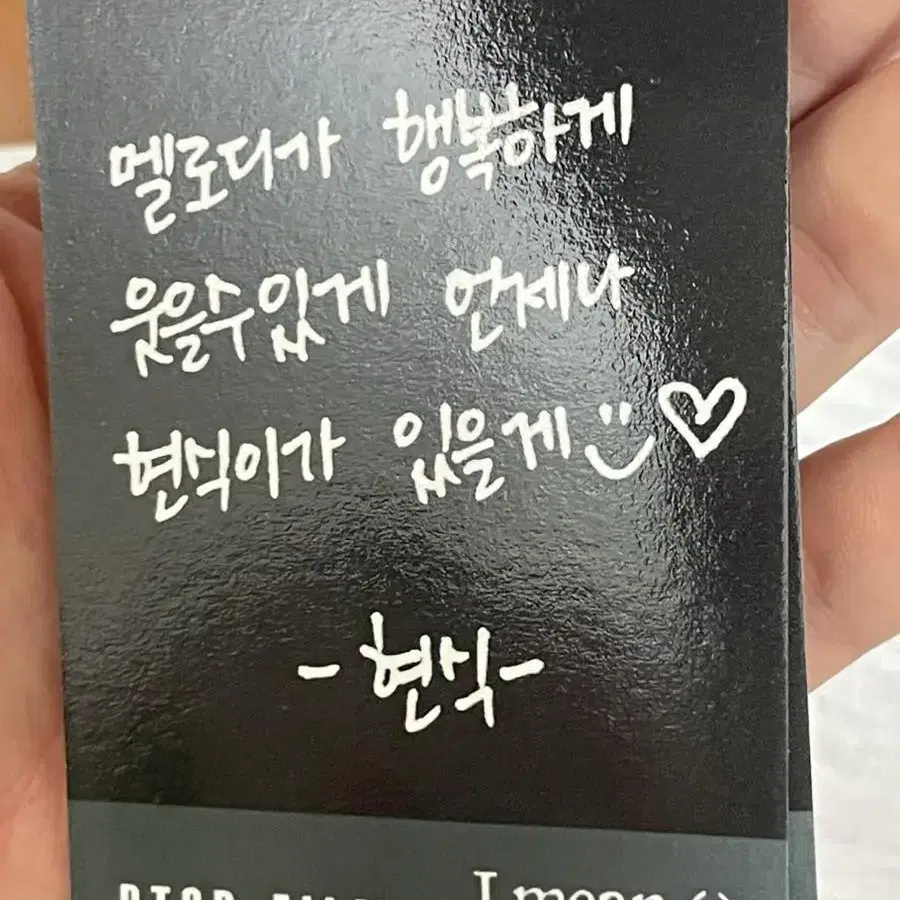 멜로디가 행복하게
웃을수있게 언제나
현식이가 있을게
-현식-
I mean